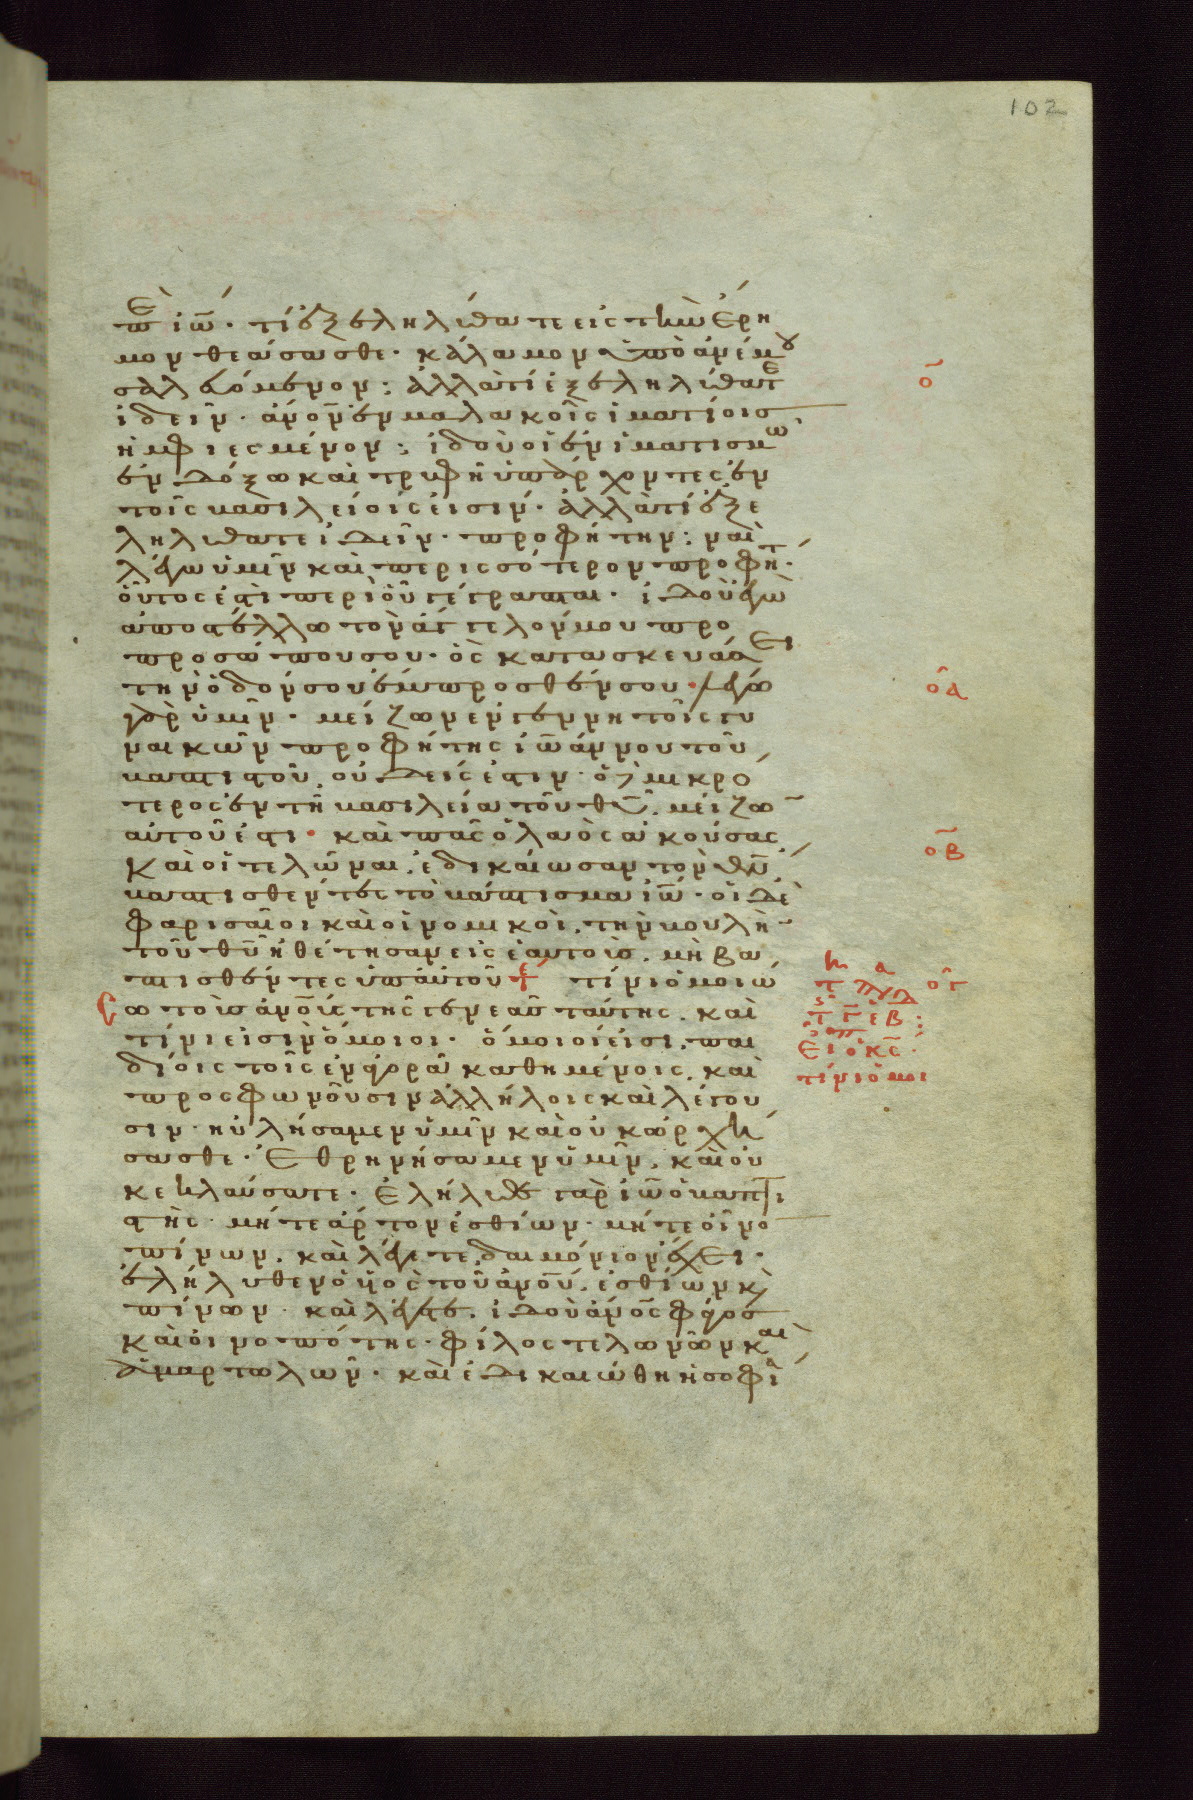 102
πε ιῶ· τί ἐξεληλύθατε εἰς τὴν ἔρη
μον θεάσασθε· κάλαμον ὑπὸ ἀνέμου
σαλευόμενον; ἀλλὰ τί ἐξεληλύθατε
ἰδεῖν· ἄνον ἐν μαλακοῖς ἱματίοις
ἠμφιεσμένον; ἰδοὺ οἱ ἐν ἱματισμῷ
ἐν δόξω καὶ τρυφῇ ὑπάρχοντες ἐν
τοῖς βασιλείοις εἰσίν· ἀλλὰ τί ἐξε
ληλύθατε ἰδεῖν· προφήτην; ναὶ
λέγω ὑμῖν καὶ περισσότερον προφή τ·
οὗτος ἐστὶ περὶ οὗ γέγραπται· ἰδοὺ ἐγὼ
ἀποστέλλω τὸν ἄγγελόν μου πρὸ
προσώπου σου· ὃς κατασκευάσει
τὴν ὁδόν σου ἔμπροσθέν σου· λέγω
γὰρ ὑμῖν· μείζων ἐν γεννητοῖς γυ
ναικῶν προφήτης ἰωάννου τοῦ
βαπτιστοῦ, οὐδείς ἐστιν· ὁ δὲ μικρό
τερος ἐν τῇ βασιλεία τοῦ θυ, μείζω
αὐτοῦ ἐστι· καὶ πᾶς ὁ λαὸς ἀκούσας
καὶ οἱ τελῶναι, ἐδικαίωσαν τὸν θν,
βαπτισθέντες τὸ βάπτισμα ιῶ· οἱ δὲ
φαρισαῖοι καὶ οἱ νομικοὶ, τὴν βουλὴ
τοῦ θυ ἠθέτησαν εἰς ἑαυτοὺς, μὴ βα
πτισθέντες ὑπ' αὐτοῦ τίνι ὁμοιώ
σω τοὺς ἀνους τῆς γενεᾶς ταύτης, καὶ
τίνι εἰσὶν ὅμοιοι· ὅμοιοί εἰσι, παι
δίοις τοῖς ἐν ἀγορᾶ καθημένοις, καὶ
προσφωνοῦσιν ἀλλήλοις καὶ λέγου
σιν· ηὐλήσαμεν ὑμῖν καὶ οὐκ ὠρχή
σασθε· ἐθρηνήσαμεν ὑμῖν, καὶ οὐ
κ ἐκλαύσατε· ἐλήλυθε γὰρ ιῶ ὁ βαπτι
στὴς· μήτε ἄρτον ἐσθίων· μήτε οἶνο
πίνων, καὶ λέγετε, δαιμόνιον ἔχει·
ἐλήλυθεν ὁ υἱὸς τοῦ ἀνου, ἐσθίων κ
πίνων· καὶ λέγετε, ἰδοὺ ἄνος φάγος
καὶ οἰνοπότης· φίλος τελωνῶν καὶ
ἁμαρτωλῶν· καὶ ἐδικαιώθη ἡ σοφί
ο
οα
οβ
ογ
εβ
ειο κς
τίνι ὁμοι